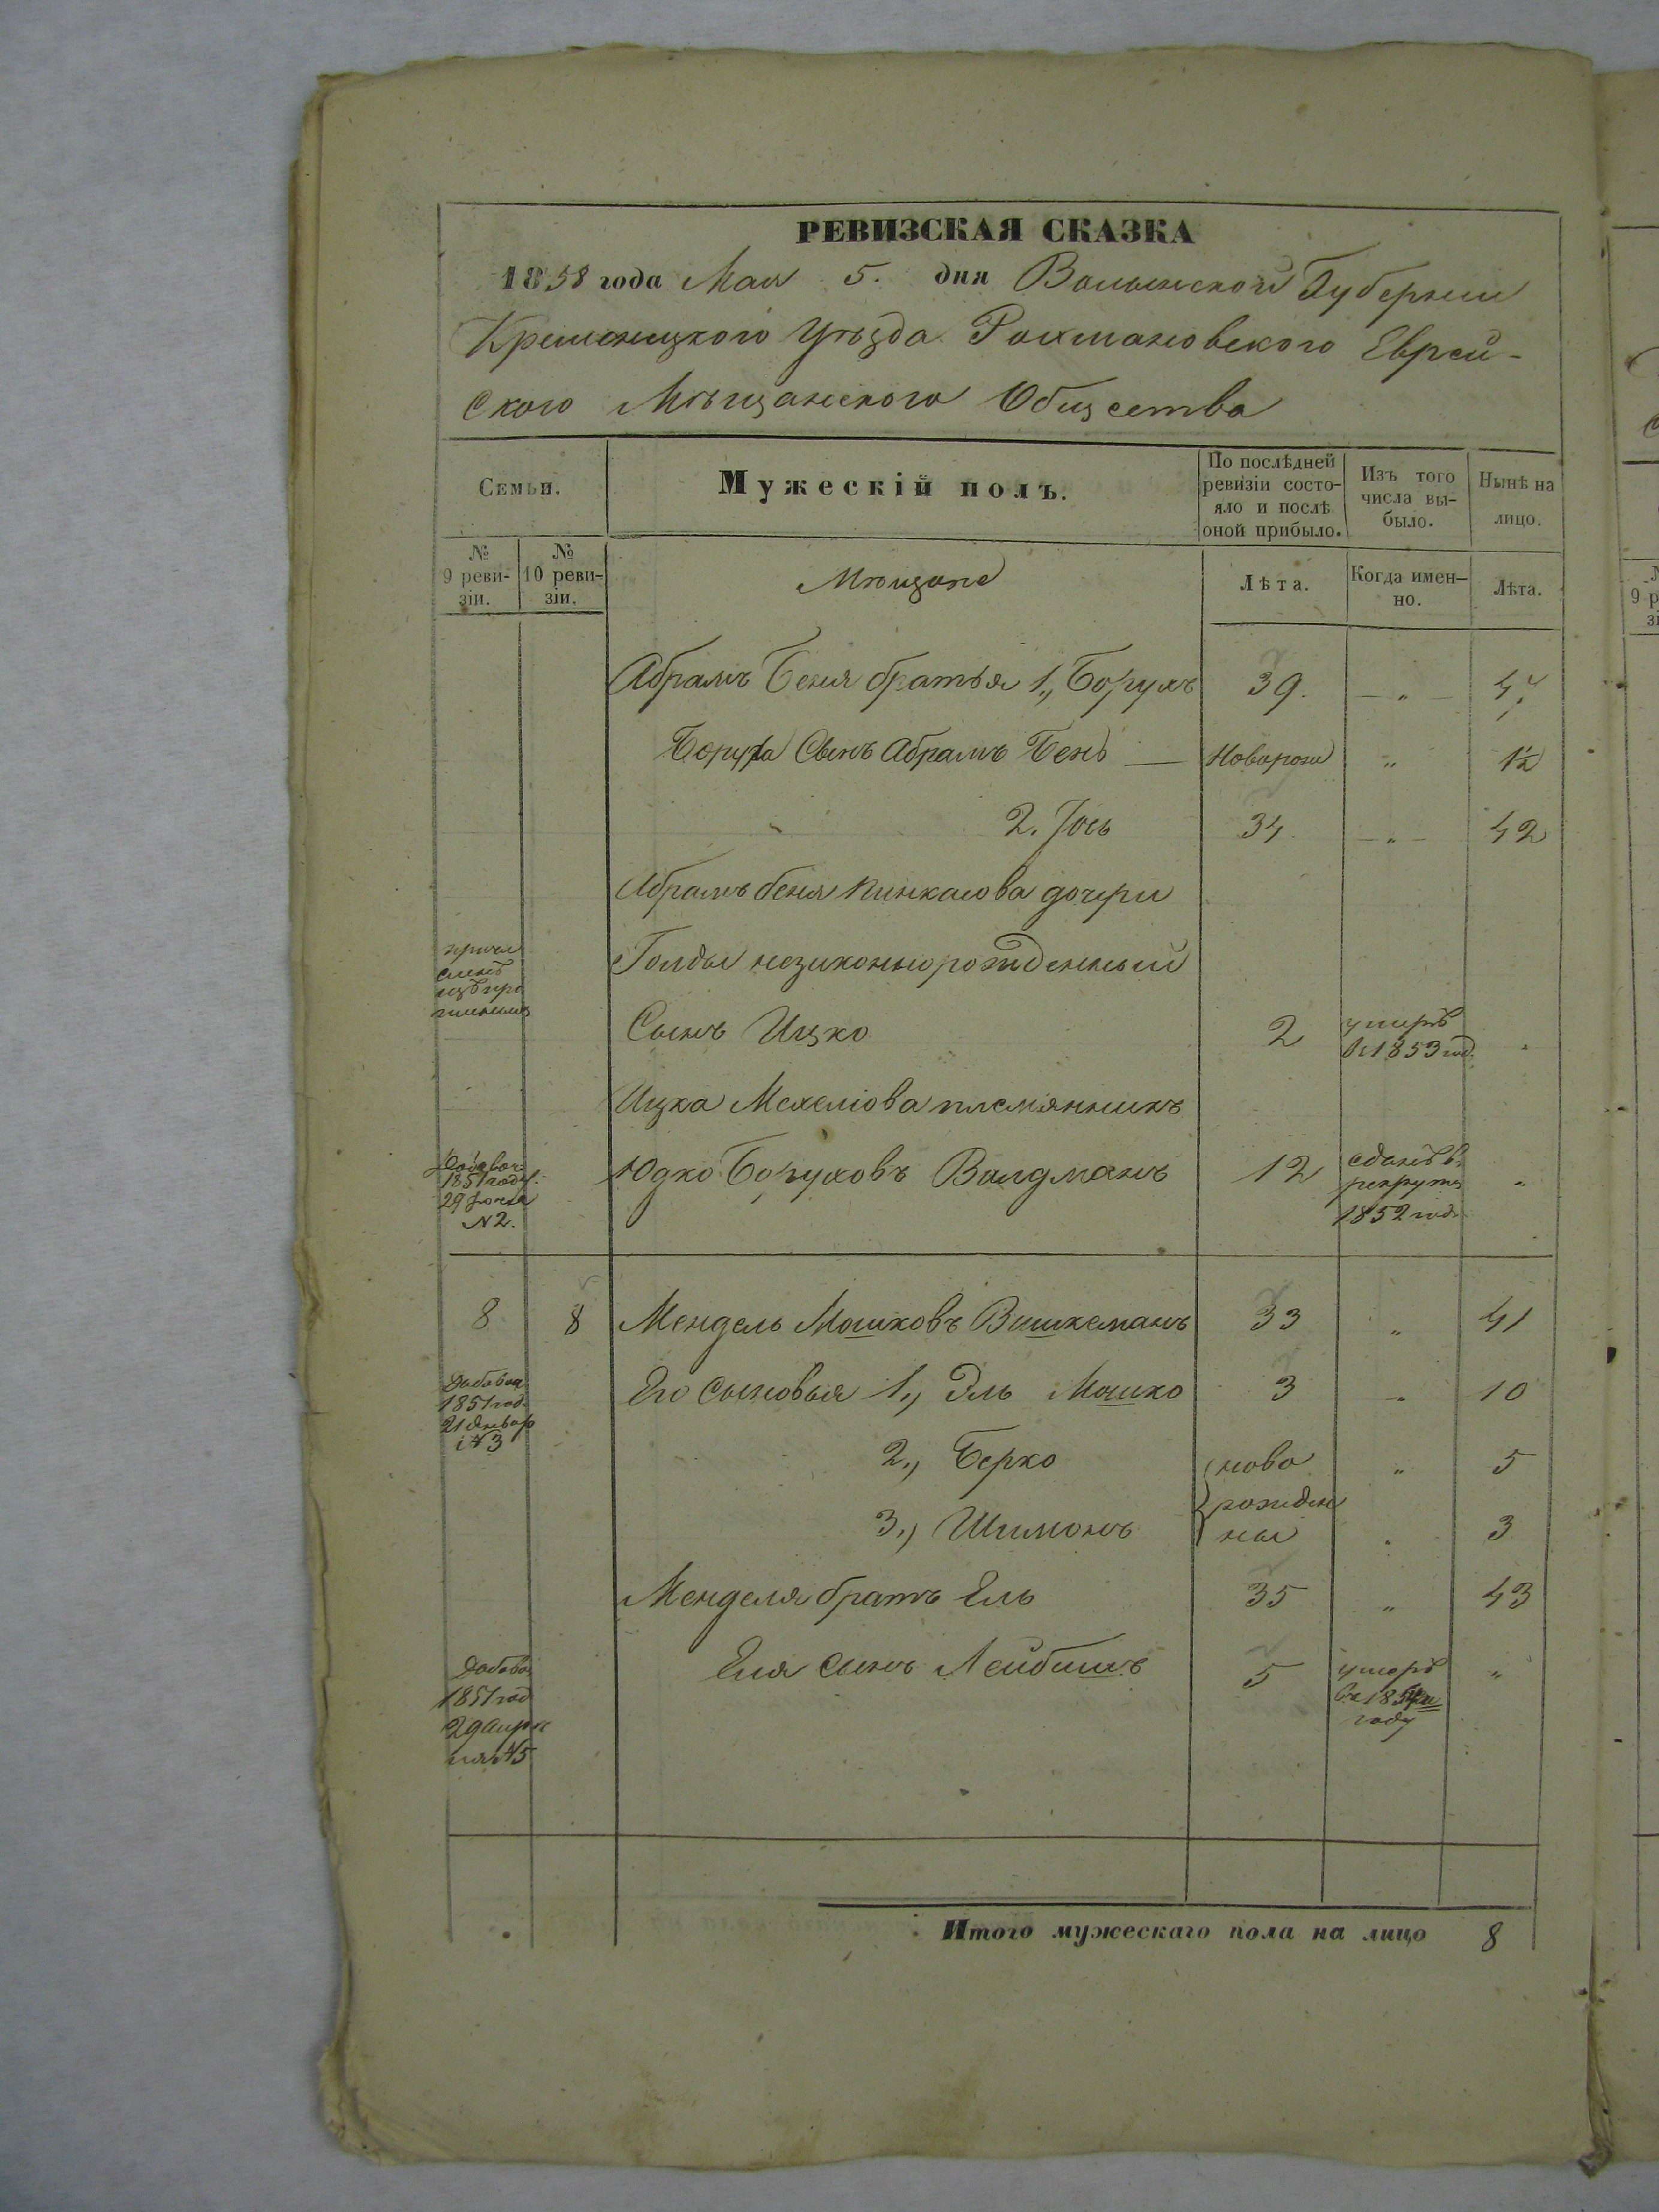 РЕВИЗСКАЯ СКАЗКА
1858 года Мая 5. дня Волынской Губернии
Кременецкого Уѣзда Рахмановского Еврей-
ского Мѣщанского Общества
Семьи.
Мужескій полъ.
По послѣдней ревизіи состо-
яло и послѣ оной прибыло.
Изъ того числа вы-
было.
Нынѣ на лицо.
№ 9 реви-
зіи.
№ 10 реви-
зіи.
Мѣщане
Лѣта.
Когда имен-
но.
Лѣта.
Абрамъ Беня братья 1., Борухъ 39. „ 47
Боруха Сынъ Абрамъ Бень —Новорож „ 1½
2. Іось 34 „ 42
Абрамъ беня Пинкасова дочери
Голды незаконнорожденный
Сынъ Ицко 2 умеръ
в 1853 год.
Ицка Мехелiова племянникъ
Добавоч.
1851 году
29 N 2.
Юдко Боруховъ Валдманъ 12 сданъ в
рекруты
1852 год „
8 8 Мендель Мошковъ Вишкеманъ 33 „ 41
Добавоч
1851 год
21 Январ
№ 3
Его Сыновья 1., Эль Мошко 3 „ 10
2., Берко ново „ 5
рожден
3., Шимонъ ные „ 3
Менделя братъ Ель 35 „ 43
Добаво
1851 год
29 Апре
ля №5
Еля Сынъ Лейбишъ 5 умеръ
году „
Итого мужескаго пола на лицо 8